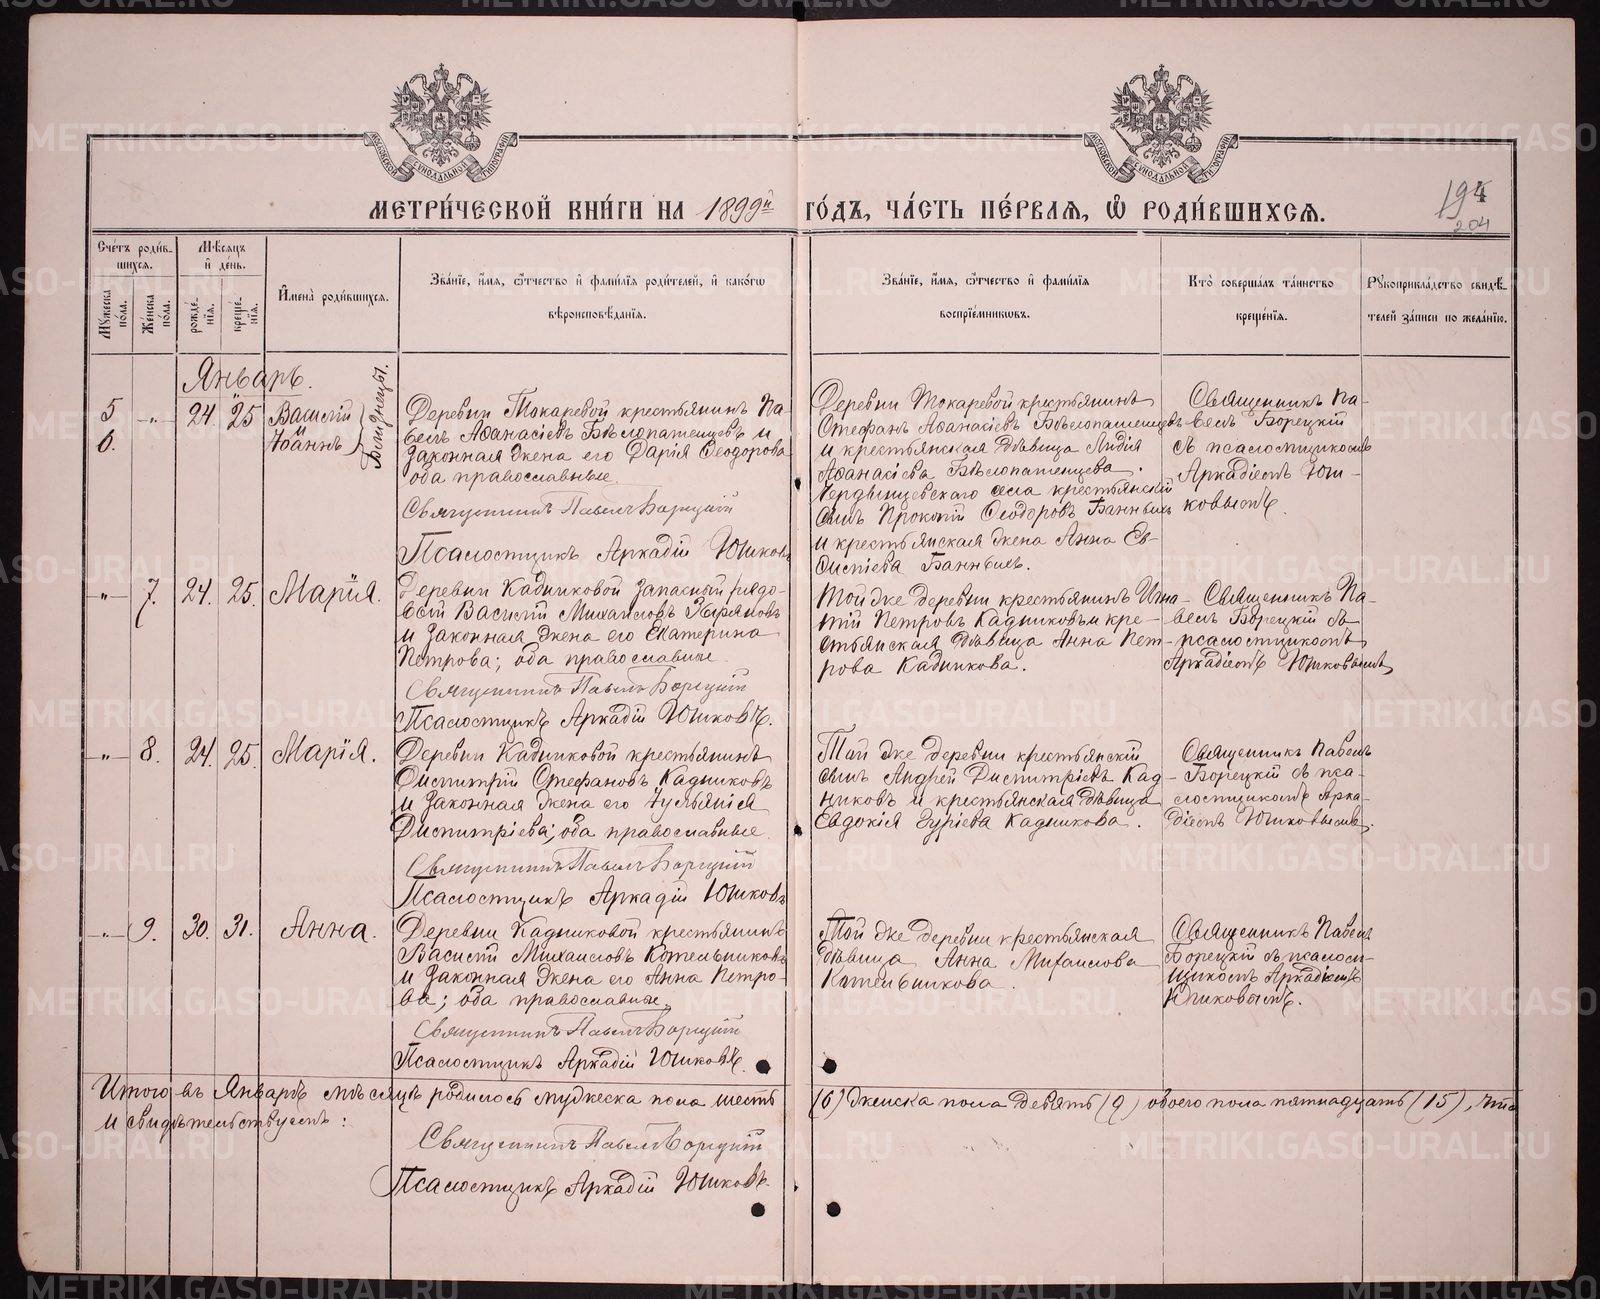 МЕТРИ́ЧЕСКОЙ КНИ́ГИ НА 1899й ГО́ДЪ, ЧА́СТЬ ПЕ́РВАЯ, Ѽ РОДИ́ВШИХСЯ.
194
204
Сче́тъ роди́в-
шихся.
Му́жеска по́ла.
Же́нска по́ла.
Мѣ́сяцъ
и҆ де́нь.
рожде́-
нїя.
креще́-
нїя.
И҆мена̀ роди́вшихся.
Зва́нїе, и҆́мя, ѻ҆́тчество и҆ фами́лїя роди́телей, и҆ како́гѡ
вѣроисповѣ́данїя.
Зва́нїе, и҆́мя, ѻ҆́тчество и҆ фами́лїя
воспрїе́мникѡвъ.
Кто̀ соверша́лъ та́инство
креще́нїя.
Рꙋкоприкла́дство свидѣ́-
телей за́писи по жела́нїю.
Январь.
5 -„- 24. 25 Василій
6. Іоаннъ
Близнецы.
Деревни Токаревой крестьянинъ Па-
велъ Аѳанасіевъ Бѣлопашенцевъ и
законная жена его Дарія Ѳеодорова
оба православные.
Священникъ Павелъ Борецкій
Псаломщикъ Аркадій Юшковъ
Деревни Токаревой крестьянинъ
Стефанъ Аѳанасіевъ Бѣлопашенцевъ
и крестьянская дѣвица Лидія
Аѳанасіева Бѣлопашенцева.
села крестьянскій
сынъ Прокопій Ѳеодоровъ Банныхъ
и крестьянская жена Анна Ев-
Банныхъ.
Священникъ Па-
велъ Борецкій
съ псаломщикомъ
Аркадіемъ Юш-
ковымъ.
-„- 7. 24. 25. Марія.
Деревни Кадниковой запасный рядо-
вой Василій Михаиловъ
и законная жена его Екатерина
Петрова; оба православные.
Священникъ Павелъ Борецкій
Псаломщикъ Аркадій Юшковъ.
Той же деревни крестьянинъ Игна-
тій Петровъ Кадниковъ и кре-
стьянская дѣвица Анна Пет-
рова Кадникова.
Священникъ Па-
велъ Борецкій съ
псаломщикомъ
Аркадіемъ Юшковымъ
-„- 8. 24. 25. Марія.
Деревни Кадниковой крестьянинъ
Димитрій Стефановъ Кадниковъ
и законная жена его Іуліанія
Димитріева; оба православные.
Священникъ Павелъ Борецкій
Псаломщикъ Аркадій Юшковъ
Той же деревни крестьянскій
сынъ Андрей Димитріевъ Кад-
никовъ и крестьянская дѣвица
Евдокія Гуріева Кадникова.
Священникъ Павелъ
Борецкій съ пса-
ломщикомъ Арка-
діемъ Юшковымъ.
-„- 9. 30. 31. Анна.
Деревни Кадниковой крестьянинъ
Василій Михаиловъ Котельниковъ
и законная жена его Анна Петро-
ва; оба православные.
Священникъ Павелъ Борецкій
Псаломщикъ Аркадій Юшковъ.
Той же деревни крестьянская
дѣвица Анна Михаилова
Котельникова.
Священникъ Павелъ
Борецкій съ псалом-
щикомъ Аркадіемъ
Юшковымъ.
Итого въ Январѣ мѣсяцѣ родилось мужеска пола шесть (6) женска пола девять (9) обоего пола пятнадцать (15), что
и свидѣтельствуемъ:
Священникъ Павелъ Борецкій
Псаломщикъ Аркадій Юшковъ.
METRIKI.GASO-URAL.RU